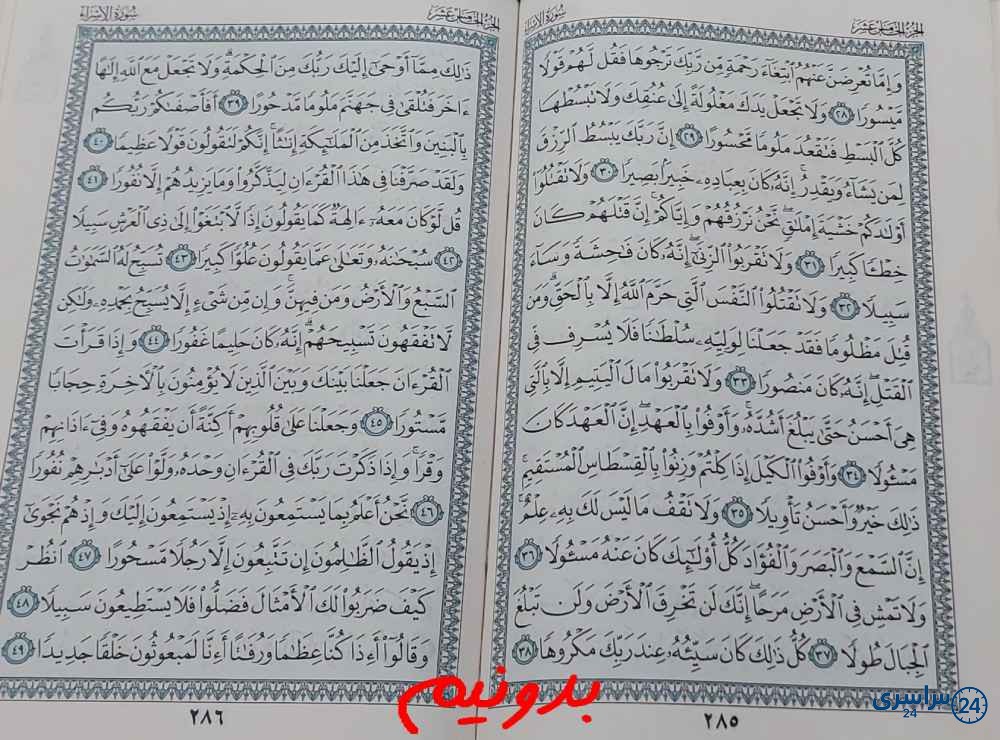 سُورَةُ الإِسْرَاءِ
الجُزْءُ الخَامِسَ عَشَرَ
وَإِمَّا تُعْرِضَنَّ عَنْهُمُ ٱبْتِغَآءَ رَحْمَةٍ مِّن رَّبِّكَ تَرْجُوهَا فَقُل لَّهُمْ قَوْلًا
مَّيْسُورًا ٢٨ وَلَا تَجْعَلْ يَدَكَ مَغْلُولَةً إِلَىٰ عُنُقِكَ وَلَا تَبْسُطْهَا
كُلَّ ٱلْبَسْطِ فَتَقْعُدَ مَلُومًا مَّحْسُورًا ٢٩ إِنَّ رَبَّكَ يَبْسُطُ ٱلرِّزْقَ
لِمَن يَشَآءُ وَيَقْدِرُ إِنَّهُۥ كَانَ بِعِبَادِهِۦ خَبِيرًۢا بَصِيرًا ٣٠ وَلَا تَقْتُلُوٓا۟
أَوْلَٰدَكُمْ خَشْيَةَ إِمْلَٰقٍ نَّحْنُ نَرْزُقُهُمْ وَإِيَّاكُمْ إِنَّ قَتْلَهُمْ كَانَ
خِطْـًٔا كَبِيرًا ٣١ وَلَا تَقْرَبُوا۟ ٱلزِّنَىٰٓ إِنَّهُۥ كَانَ فَٰحِشَةً وَسَآءَ
سَبِيلًا ٣٢ وَلَا تَقْتُلُوا۟ ٱلنَّفْسَ ٱلَّتِى حَرَّمَ ٱللَّهُ إِلَّا بِٱلْحَقِّ وَمَن
قُتِلَ مَظْلُومًا فَقَدْ جَعَلْنَا لِوَلِيِّهِۦ سُلْطَٰنًا فَلَا يُسْرِف فِّى
ٱلْقَتْلِ إِنَّهُۥ كَانَ مَنصُورًا ٣٣ وَلَا تَقْرَبُوا۟ مَالَ ٱلْيَتِيمِ إِلَّا بِٱلَّتِى
هِىَ أَحْسَنُ حَتَّىٰ يَبْلُغَ أَشُدَّهُۥ وَأَوْفُوا۟ بِٱلْعَهْدِ إِنَّ ٱلْعَهْدَ كَانَ
مَسْـُٔولًا ٣٤ وَأَوْفُوا۟ ٱلْكَيْلَ إِذَا كِلْتُمْ وَزِنُوا۟ بِٱلْقِسْطَاسِ ٱلْمُسْتَقِيمِ
ذَٰلِكَ خَيْرٌ وَأَحْسَنُ تَأْوِيلًا ٣٥ وَلَا تَقْفُ مَا لَيْسَ لَكَ بِهِۦ عِلْمٌ
إِنَّ ٱلسَّمْعَ وَٱلْبَصَرَ وَٱلْفُؤَادَ كُلُّ أُو۟لَٰٓئِكَ كَانَ عَنْهُ مَسْـُٔولًا ٣٦
وَلَا تَمْشِ فِى ٱلْأَرْضِ مَرَحًا إِنَّكَ لَن تَخْرِقَ ٱلْأَرْضَ وَلَن تَبْلُغَ
ٱلْجِبَالَ طُولًا ٣٧ كُلُّ ذَٰلِكَ كَانَ سَيِّئُهُۥ عِندَ رَبِّكَ مَكْرُوهًا ٣٨
٢٨٥
سُورَةُ الإِسْرَاءِ
الجُزْءُ الخَامِسَ عَشَرَ
ذَٰلِكَ مِمَّآ أَوْحَىٰٓ إِلَيْكَ رَبُّكَ مِنَ ٱلْحِكْمَةِ وَلَا تَجْعَلْ مَعَ ٱللَّهِ إِلَٰهًا
ءَاخَرَ فَتُلْقَىٰ فِى جَهَنَّمَ مَلُومًا مَّدْحُورًا ٣٩ أَفَأَصْفَىٰكُمْ رَبُّكُم
بِٱلْبَنِينَ وَٱتَّخَذَ مِنَ ٱلْمَلَٰٓئِكَةِ إِنَٰثًا إِنَّكُمْ لَتَقُولُونَ قَوْلًا عَظِيمًا ٤٠
وَلَقَدْ صَرَّفْنَا فِى هَٰذَا ٱلْقُرْءَانِ لِيَذَّكَّرُوا۟ وَمَا يَزِيدُهُمْ إِلَّا نُفُورًا ٤١
قُل لَّوْ كَانَ مَعَهُۥٓ ءَالِهَةٌ كَمَا يَقُولُونَ إِذًا لَّٱبْتَغَوْا۟ إِلَىٰ ذِى ٱلْعَرْشِ سَبِيلًا
٤٢ سُبْحَٰنَهُۥ وَتَعَٰلَىٰ عَمَّا يَقُولُونَ عُلُوًّا كَبِيرًا ٤٣ تُسَبِّحُ لَهُ ٱلسَّمَٰوَٰتُ
ٱلسَّبْعُ وَٱلْأَرْضُ وَمَن فِيهِنَّ وَإِن مِّن شَىْءٍ إِلَّا يُسَبِّحُ بِحَمْدِهِۦ وَلَٰكِن
لَّا تَفْقَهُونَ تَسْبِيحَهُمْ إِنَّهُۥ كَانَ حَلِيمًا غَفُورًا ٤٤ وَإِذَا قَرَأْتَ
ٱلْقُرْءَانَ جَعَلْنَا بَيْنَكَ وَبَيْنَ ٱلَّذِينَ لَا يُؤْمِنُونَ بِٱلْءَاخِرَةِ حِجَابًا
مَّسْتُورًا ٤٥ وَجَعَلْنَا عَلَىٰ قُلُوبِهِمْ أَكِنَّةً أَن يَفْقَهُوهُ وَفِىٓ ءَاذَانِهِمْ
وَقْرًا وَإِذَا ذَكَرْتَ رَبَّكَ فِى ٱلْقُرْءَانِ وَحْدَهُۥ وَلَّوْا۟ عَلَىٰٓ أَدْبَٰرِهِمْ نُفُورًا
٤٦ نَّحْنُ أَعْلَمُ بِمَا يَسْتَمِعُونَ بِهِۦٓ إِذْ يَسْتَمِعُونَ إِلَيْكَ وَإِذْ هُمْ نَجْوَىٰٓ
إِذْ يَقُولُ ٱلظَّٰلِمُونَ إِن تَتَّبِعُونَ إِلَّا رَجُلًا مَّسْحُورًا ٤٧ ٱنظُرْ
كَيْفَ ضَرَبُوا۟ لَكَ ٱلْأَمْثَالَ فَضَلُّوا۟ فَلَا يَسْتَطِيعُونَ سَبِيلًا ٤٨
وَقَالُوٓا۟ أَءِذَا كُنَّا عِظَٰمًا وَرُفَٰتًا أَءِنَّا لَمَبْعُوثُونَ خَلْقًا جَدِيدًا ٤٩
٢٨٦
بدونیم
سراسری
24
24